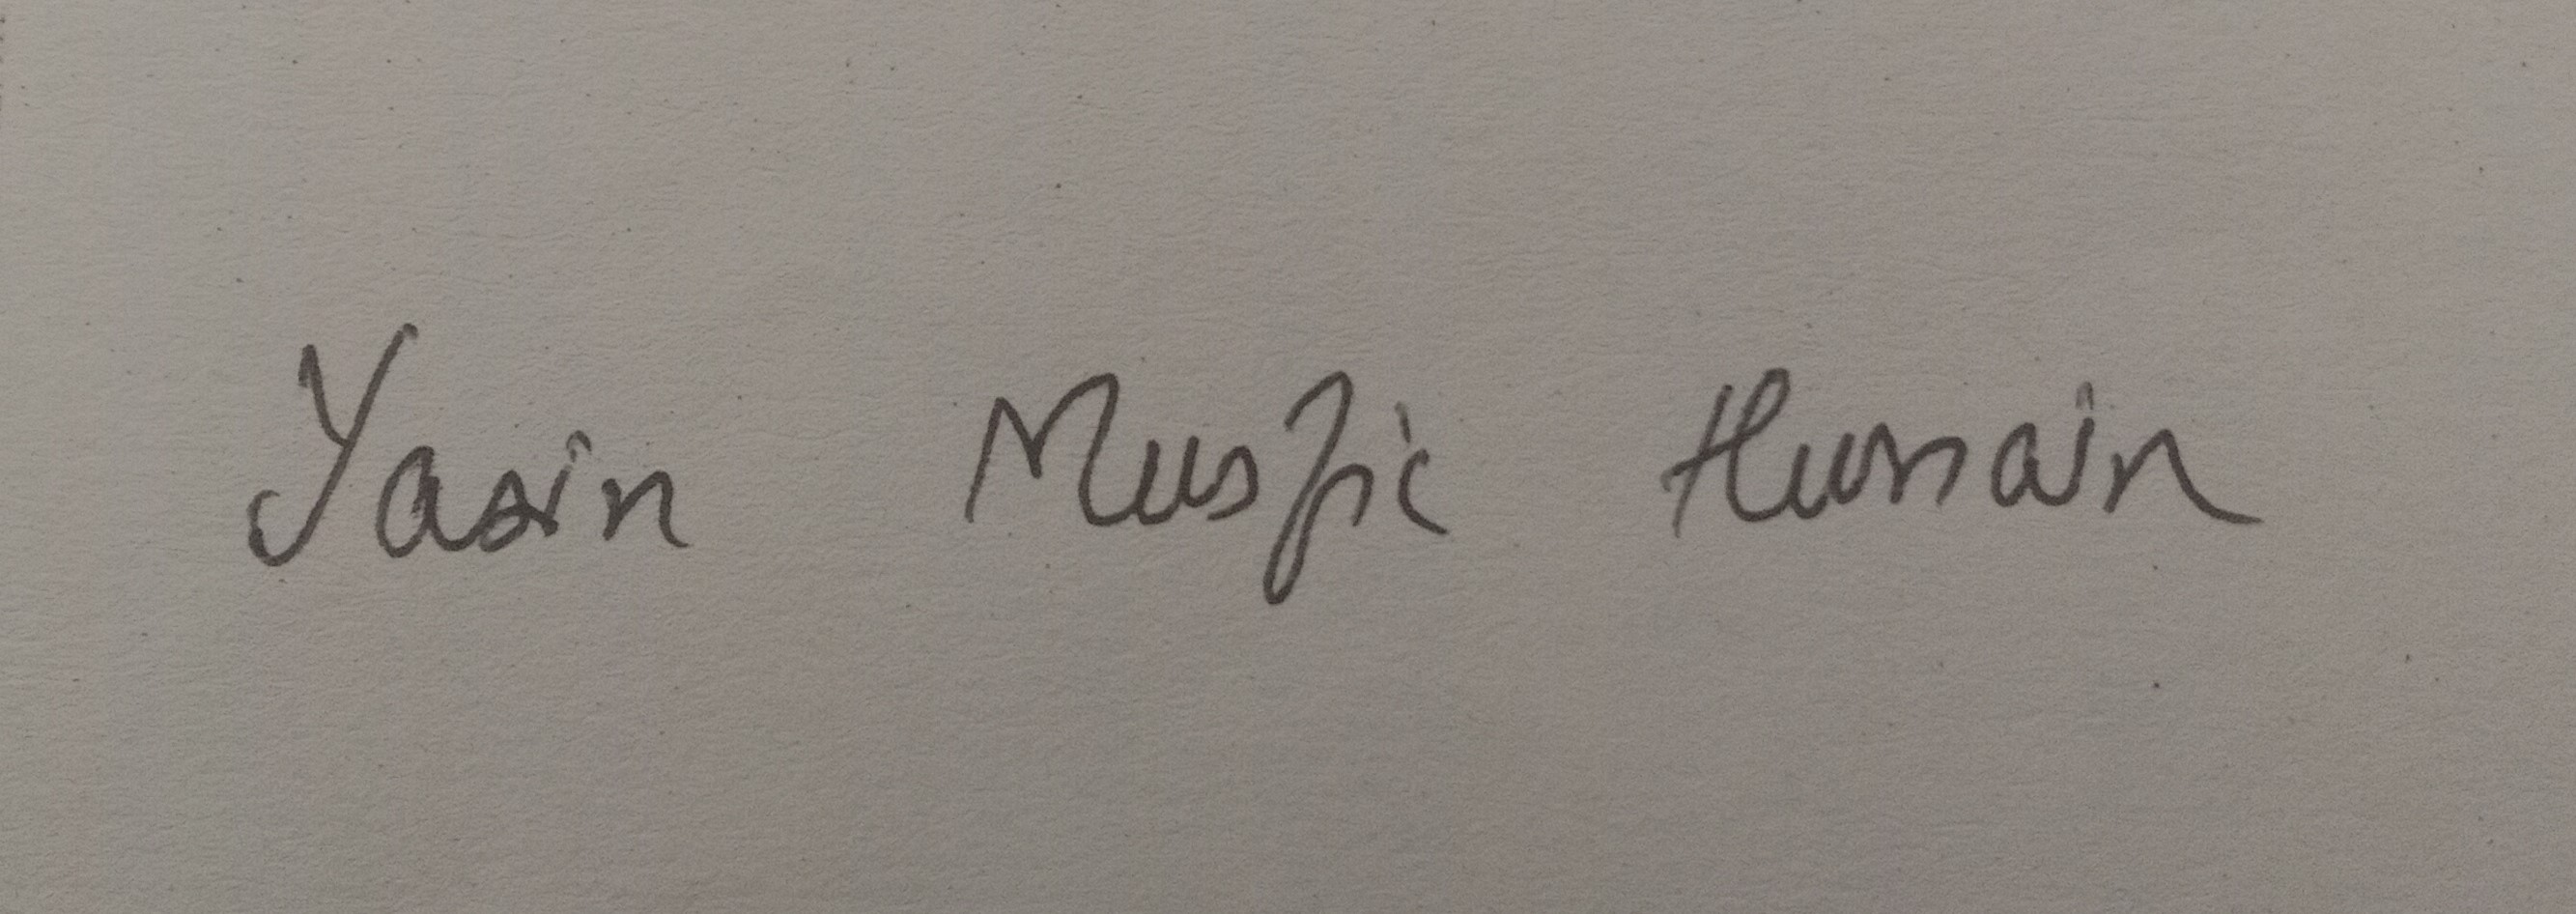 Yasin Musfic Hunain